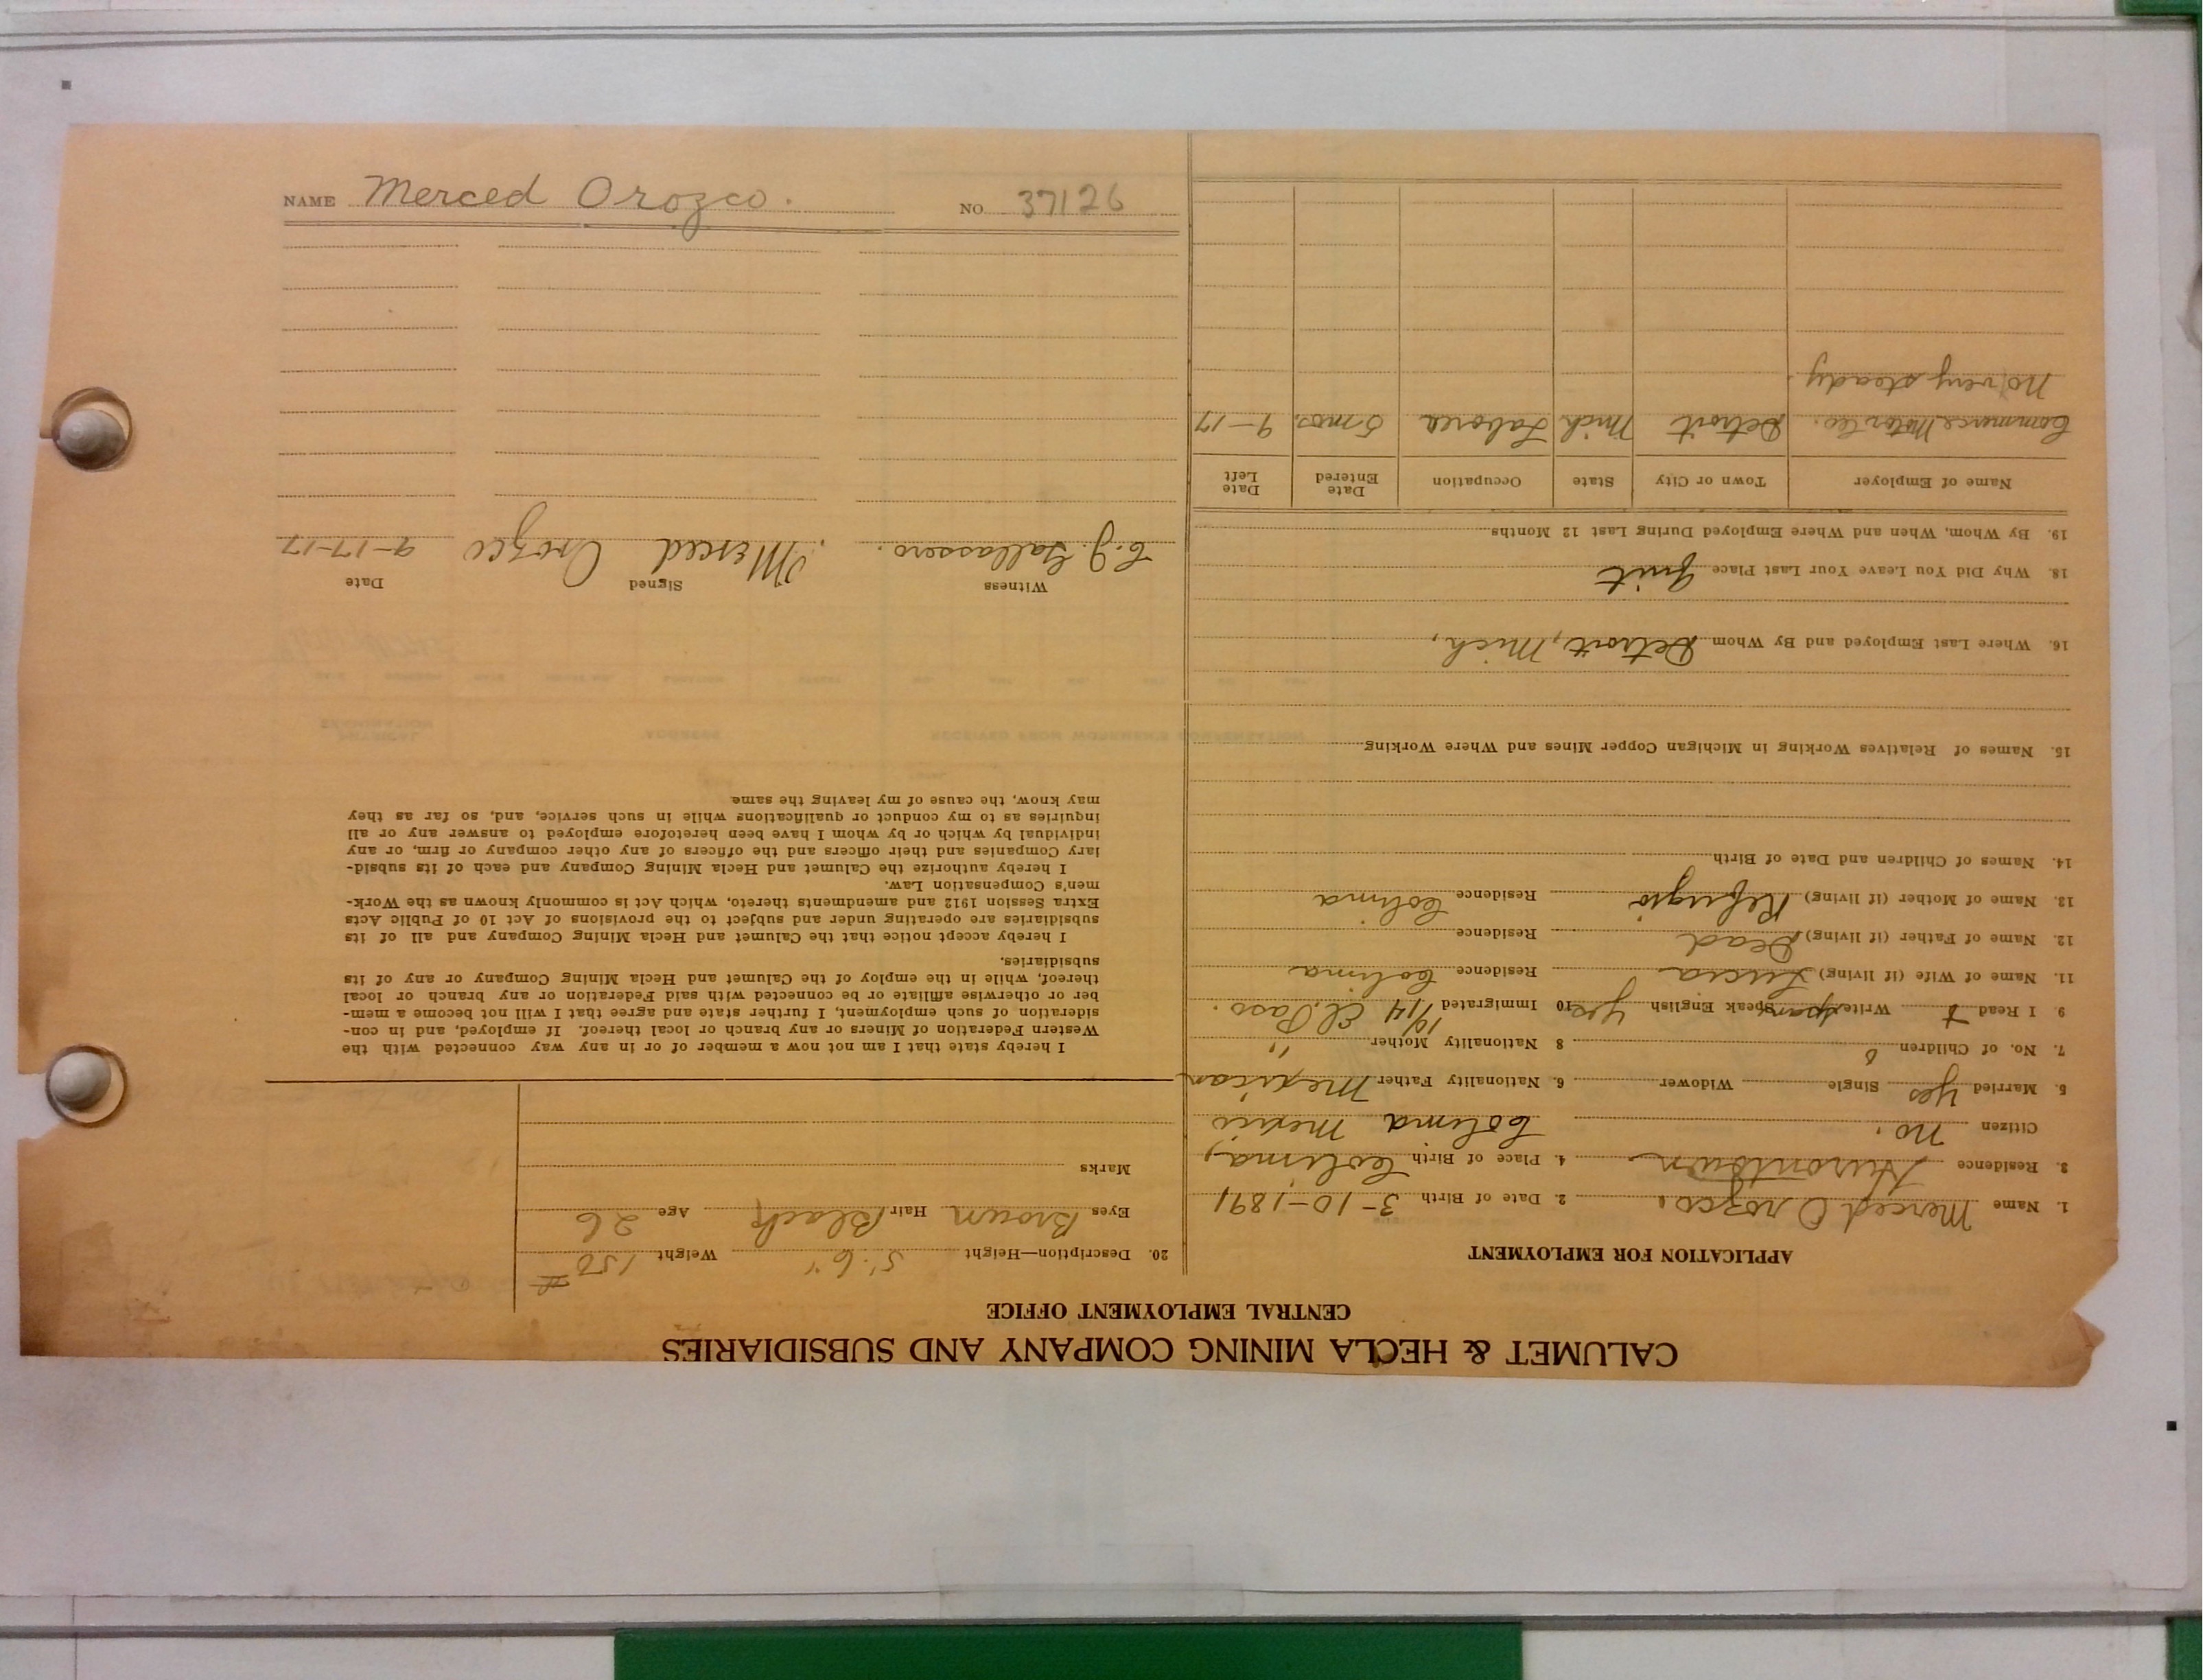 CALUMET & HECLA MINING COMPANY AND SUBSIDIARIES
CENTRAL EMPLOYMENT OFFICE
APPLICATION FOR EMPLOYMENT
1. Name Merced Orozco. 2. Date of Birth 3-10-1891
3. Residence Hurontown 4. Place of Birth Colima,
Citizen No. Colima Mexico
5. Married Yes Single Widower 6. Nationality Father Mexican
7. No. of Children 0 8 Nationality Mother "
9. I Read & Write Span. Speak English Yes 10 Immigrated 10/14 El Paso.
11. Name of Wife (if living) Lucia Residence Colima
12. Name of Father (if living) Dead Residence
13. Name of Mother (if living) Refugio Residence Colima
14. Names of Children and Date of Birth
15. Names of Relatives Working in Michigan Copper Mines and Where Working
16. Where Last Employed and By Whom Detroit, Mich,
18. Why Did You Leave Your Last Place Quit
19. By Whom, When and Where Employed During Last 12 Months
Name of Employer Town or City State Occupation Date Entered Date Left
Commerce Motor Co. Detroit Mich Laborer 5 mos. 9-17
No very steady.
20. Description—Height 5' 6" Weight 150 #
Eyes Brown Hair Black Age 26
Marks
I hereby state that I am not now a member of or in any way connected with the
Western Federation of Miners or any branch or local thereof. If employed, and in con-
sideration of such employment, I further state and agree that I will not become a mem-
ber or otherwise affiliate or be connected with said Federation or any branch or local
thereof, while in the employ of the Calumet and Hecla Mining Company or any of its
subsidiaries.
I hereby accept notice that the Calumet and Hecla Mining Company and all of its
subsidiaries are operating under and subject to the provisions of Act 10 of Public Acts
Extra Session 1912 and amendments thereto, which Act is commonly known as the Work-
men's Compensation Law.
I hereby authorize the Calumet and Hecla Mining Company and each of its subsid-
iary Companies and their officers and the officers of any other company or firm, or any
individual by which or by whom I have been heretofore employed to answer any or all
inquiries as to my conduct or qualifications while in such service, and, so far as they
may know, the cause of my leaving the same
Witness Signed Date
C.J. Gallassero. Merced Orozco 9-17-17
NAME Merced Orozco. NO 37126